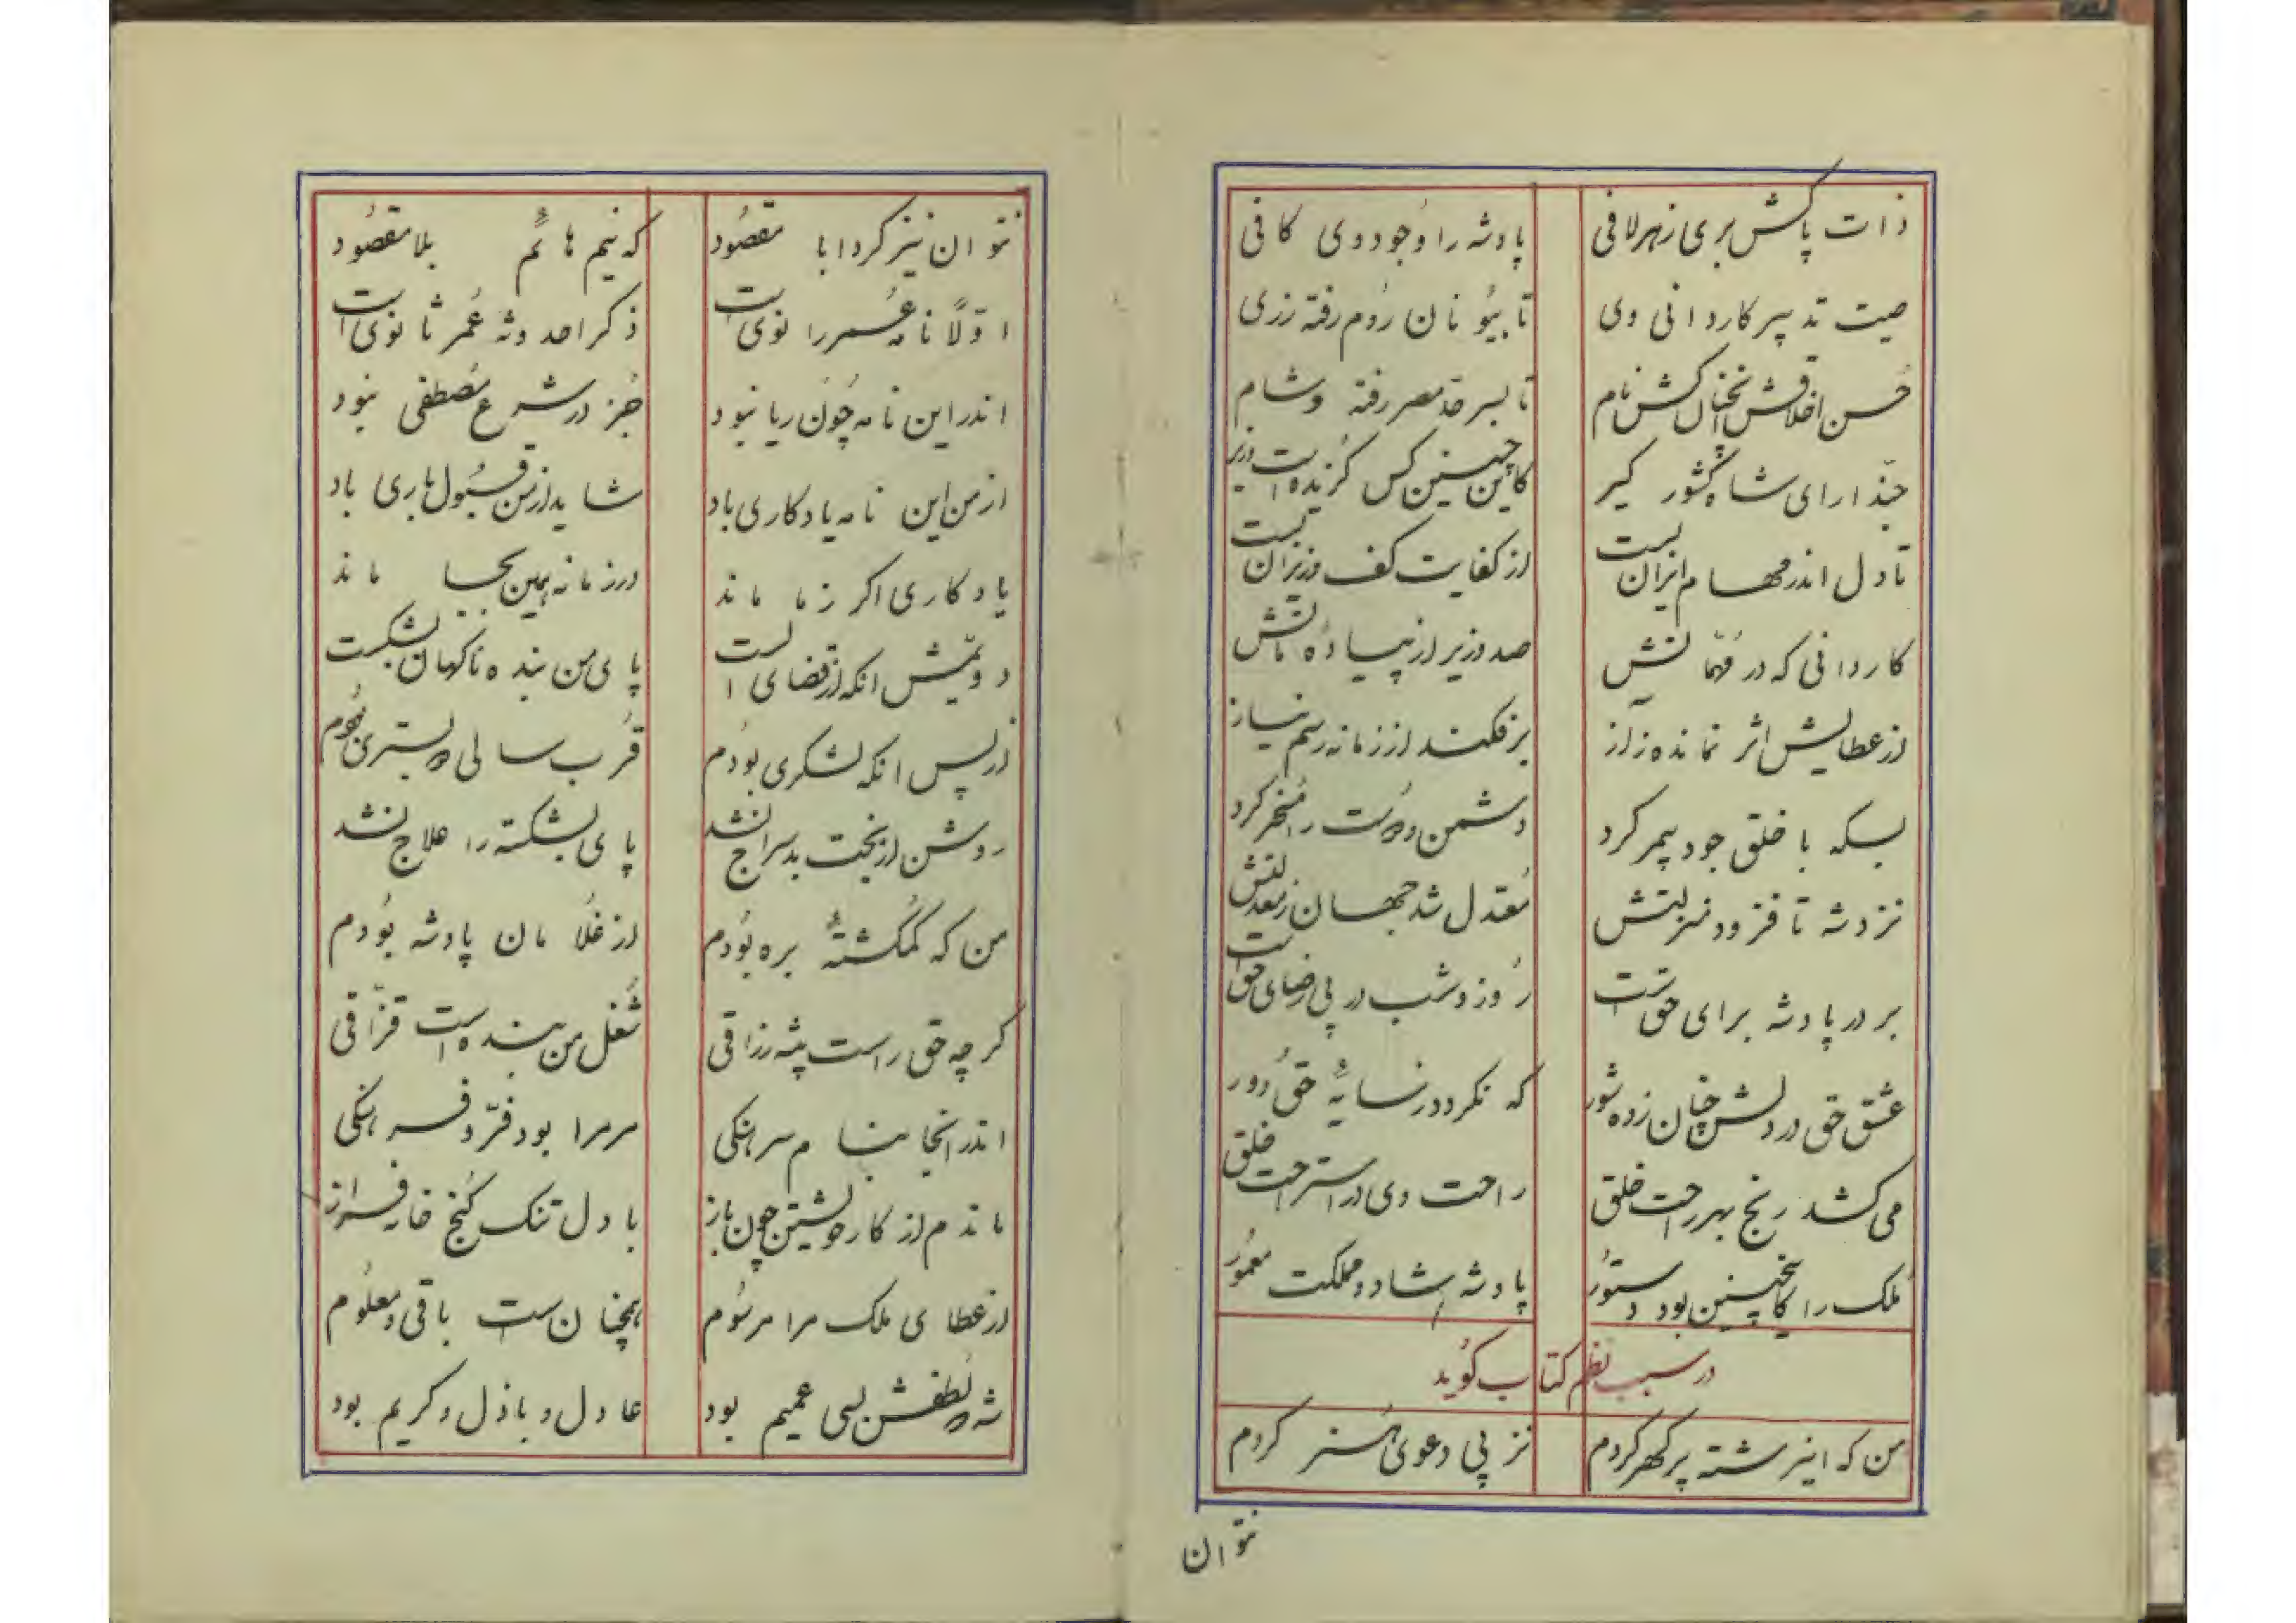 ذات پاکش بری ز هر لافی
پادشه را وجود وی کافی
صیت تدبیر کاردانی وی
تا بیونان روم رفته زری
حسن اخلاقش آنچنان کش نام
تا بسرحد مصر رفته و شام
حبّذا رای شاه کشور گیر
کاین چنین کس گزیده است وزیر
تا دل اندر مهام ایران بست
از کفایت کف وزیران بست
کاردانی که در مهماتش
صد وزیر از پیاده ماتش
از عطایش اثر نمانده ز از
برفکند از زمانه رسم نیاز
بسکه با خلق جود بیمر کرد
دشمن و دوست را مسخر کرد
نزد شه تا فزود منزلتش
معتدل شد جهان ز معدلتش
بر در پادشه برای حق است
روز و شب در پی رضای حق است
عشق حق در دلش چنان زده شور
که نگردد ز سایهٔ حق دور
می کشد رنج بهر راحت خلق
راحت وی در استراحت خلق
ملک را کاینچنین بود دستور
پادشه شاد و مملکت معمور
در سبب نظم کتاب گوید
من که این رشته پر گهر کردم
نز پی دعوی هنر کردم
نتوان
نتوان نیز کرد ابا مقصود
که نیم هائم بلا مقصود
اوّلاً نامه عمر را نوی است
ذکر احدوثه عمر ثانوی است
اندر این نامه چون ریا نبود
جز در شرع مصطفی نبود
از من این نامه یادگاری باد
شاید از من قبول باری باد
یادگاری اگر ز ما ماند
در زمانه همین بجا ماند
دویّمش آنکه از قضای الست
پای من بنده ناگهان بشکست
از پس آنکه لشکری بودم
قرب سالی به بستری بودم
روشن از بخت بد سراج نشد
پای بشکسته را علاج نشد
من که گمگشتهٔ بره بودم
از غلامان پادشه بودم
گرچه حق راست پیشه رزاقی
شغل من بنده است قزّاقی
اندر آنجا بنام سرهنگی
مر مرا بود فرّ و فرهنگی
ماندم از کار خویشتن چون باز
با دل تنگ کنج خانه فراز
از عطای ملک مرا مرسوم
همچنان است باقی و معلوم
شه که لطفش بسی عمیم بود
عادل و باذل و کریم بود